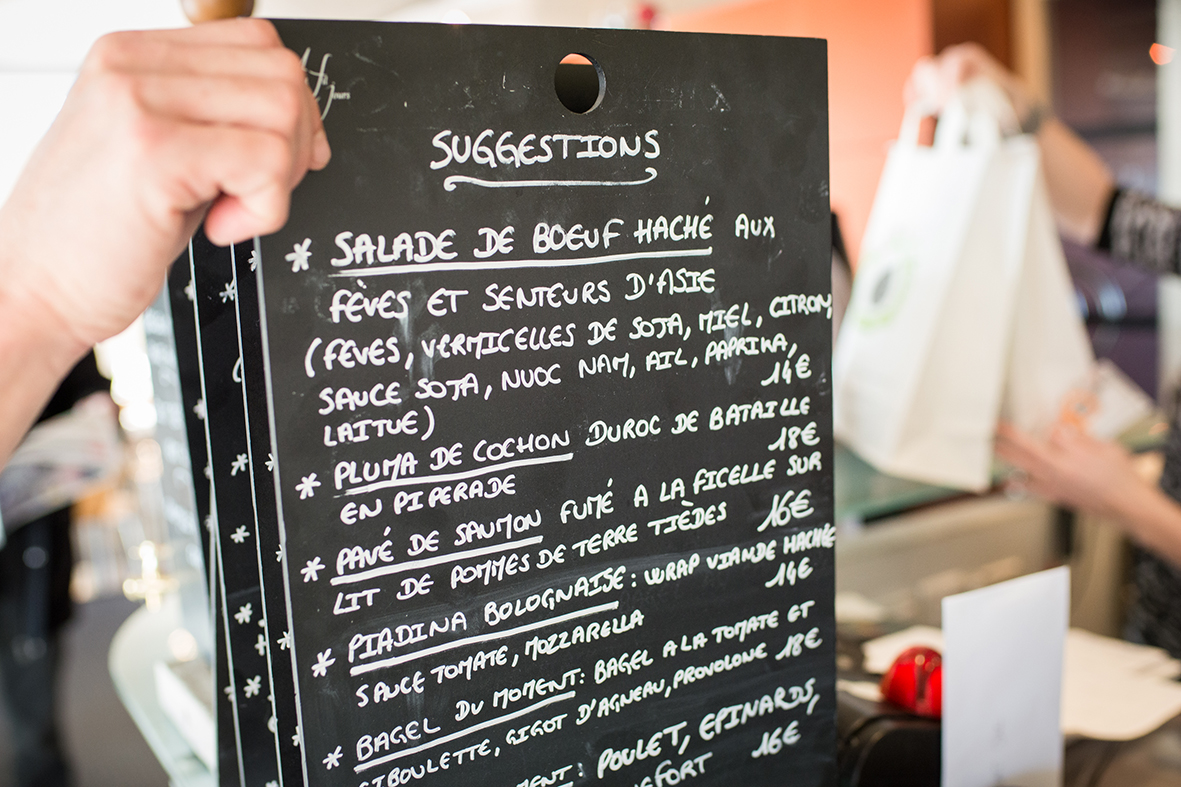 SUGGESTIONS
* SALADE DE BOEUF HACHÉ AUX
FÈVES ET SENTEURS D'ASIE
(FÈVES, VERMICELLES DE SOJA, MIEL, CITRON,
SAUCE SOJA, NUOC NAM, AIL, PAPRIKA,
LAITUE) 14€
* PLUMA DE COCHON DUROC DE BATAILLE
EN PIPERADE 18€
* PAVÉ DE SAUMON FUMÉ A LA FICELLE SUR
LIT DE POMMES DE TERRE TIÈDES 16€
* PIADINA BOLOGNAISE : WRAP VIANDE HACHÉE
SAUCE TOMATE, MOZZARELLA 14€
* BAGEL DU MOMENT : BAGEL A LA TOMATE ET
CIBOULETTE, GIGOT D'AGNEAU, PROVOLONE 18€
: POULET, EPINARDS,
16€